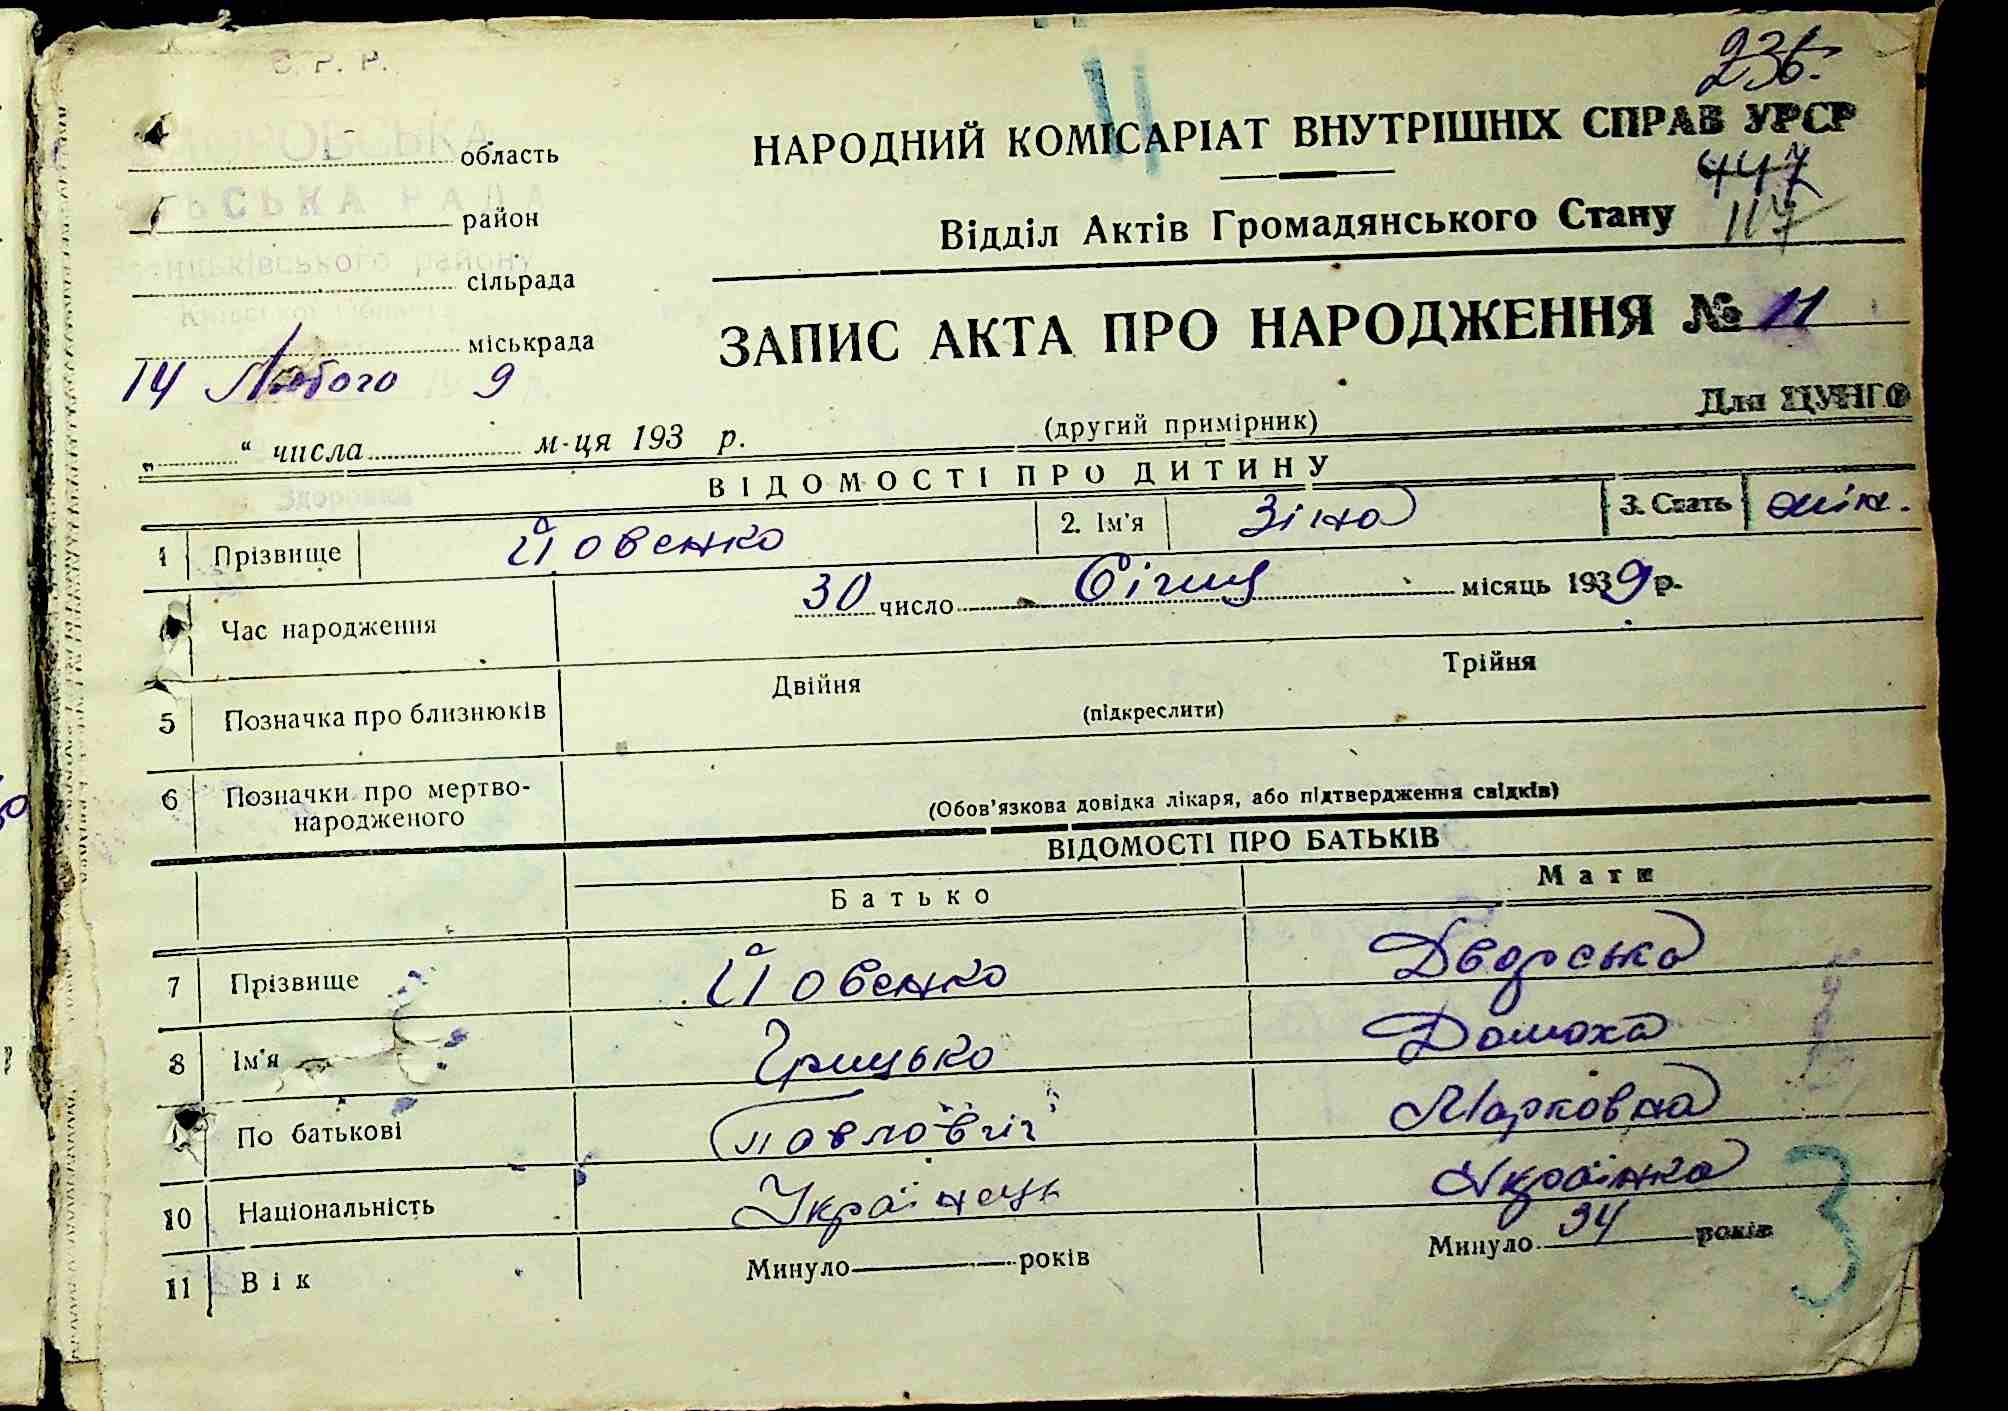 С. Р. Р.
236.
область
НАРОДНИЙ КОМІСАРІАТ ВНУТРІШНІХ СПРАВ УРСР
447
район
Відділ Актів Громадянського Стану
117
сільрада
міськрада
ЗАПИС АКТА ПРО НАРОДЖЕННЯ № 11
14 Лютого 9
Для ЦУНГО
„ “ числа м-ця 193 р.
(другий примірник)
ВІДОМОСТІ ПРО ДИТИНУ
Здоровка
1 Прізвище Йовенко 2. Ім'я Зіна 3. Стать жін.
Час народження 30 число Січня місяць 1939 р.
5 Позначка про близнюків Двійня Трійня
(підкреслити)
6 Позначки про мертво-
народженого
(Обов'язкова довідка лікаря, або підтвердження свідків)
ВІДОМОСТІ ПРО БАТЬКІВ
Батько Мати
7 Прізвище Йовенко Дворська
8 Ім'я Грицько Домаха
По батькові Павлович Марковна
10 Національність Українець Українка
11 Вік Минуло років Минуло 34 років
3